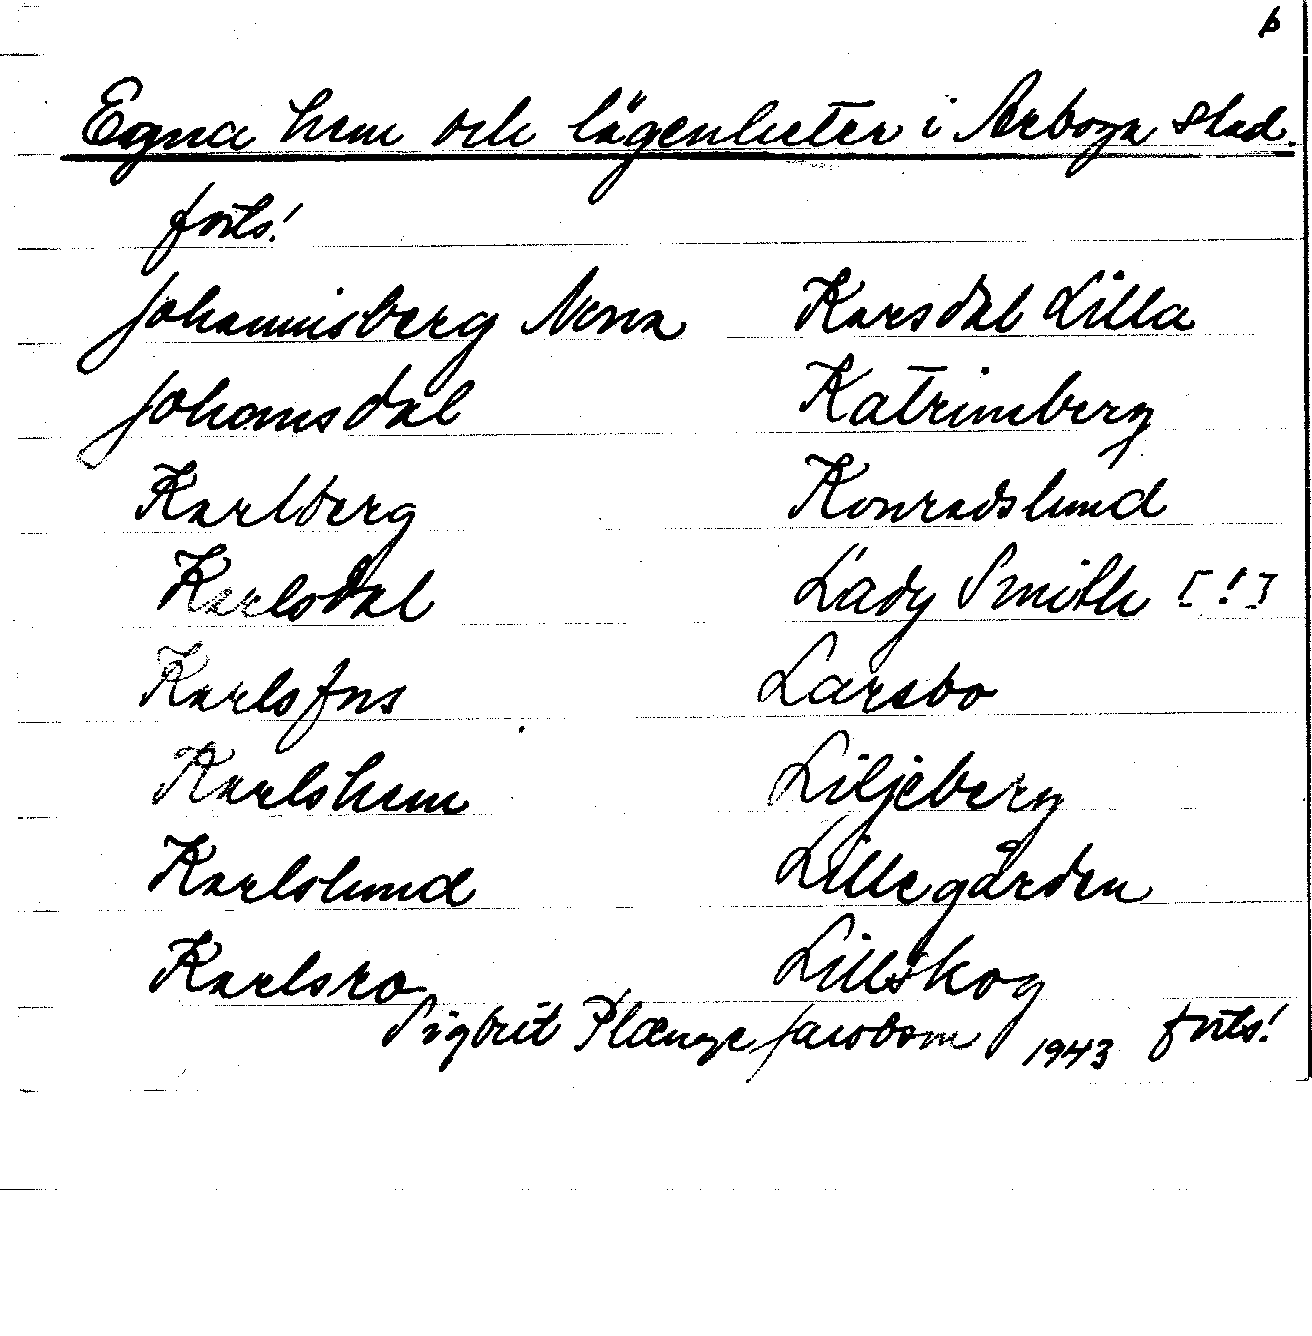 6
Egna hem och lägenheter i Arboga stad.
forts!
Johannisberg Norra
Johannsdal
Karlberg
Karlsdal
Karlsfors
Karlshem
Karlslund
Karlsro
Karsdal Lilla
Katrineberg
Konradslund
Lady Smith [!]
Larsbo
Liljeberg
Lillegården
Lillskog
Sigbrit Plænge Jacobson 1943 forts!